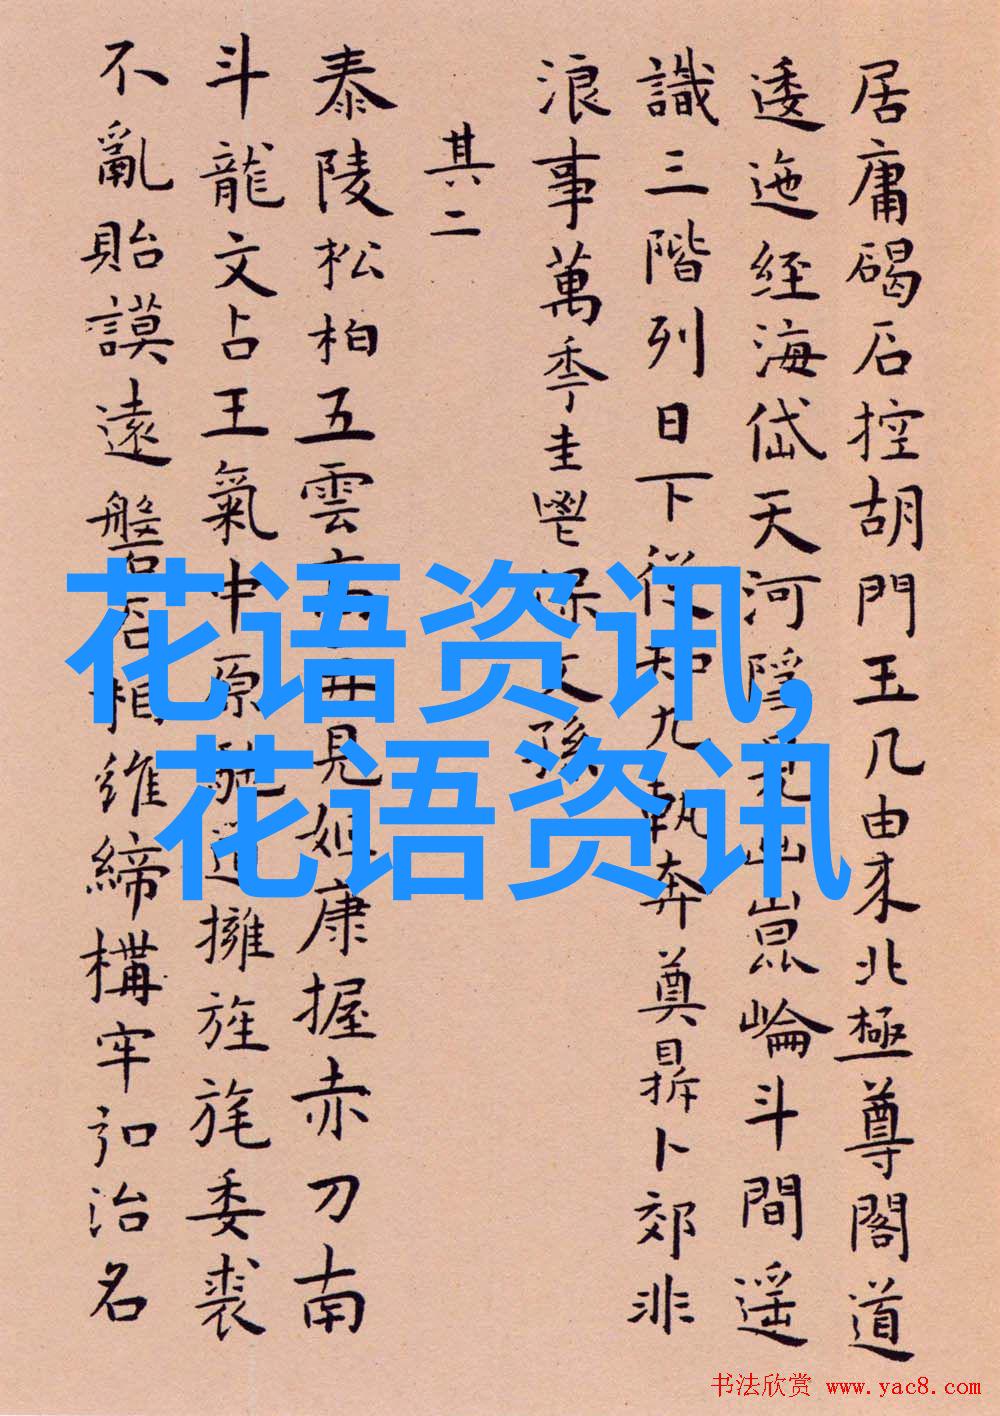 居庸碣石控胡門玉几由来北極尊閣道
逶迤經海岱天河隱見出崑崙斗間遥
識三階列日下從知九執奔奠鼎卜郊非
浪事萬季圭鬯保文孫
其二
泰陵松柏五雲見姬康握赤刀南
斗龍文占王氣中原擁旌旄委裘
不亂貽謨遠磐石相維締構牢弘治名
花语资讯,
花语资讯
书法欣赏 www.yac8.com